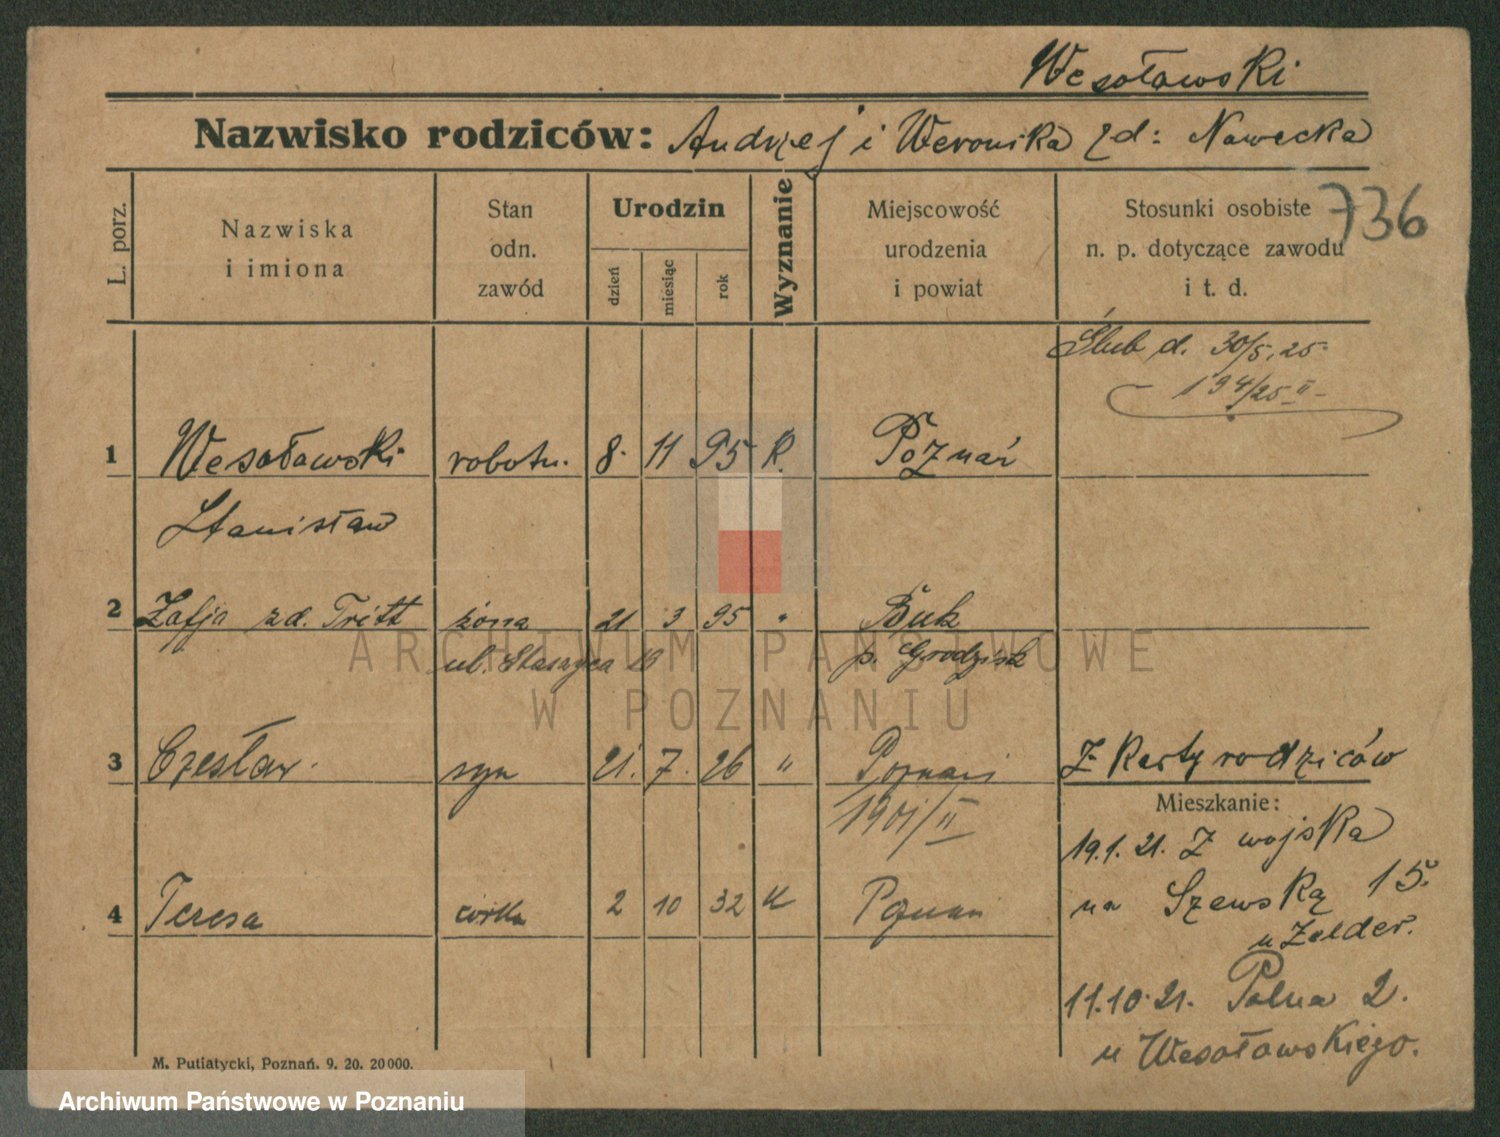 Wesołowski
Nazwisko rodziców: Andrzej i Weronika zd: Nawecka
L. porz.
Nazwiska
i imiona
Stan
odn.
zawód
Urodzin
dzień
miesiąc
rok
Wyznanie
Miejscowość
urodzenia
i powiat
Stosunki osobiste
n. p. dotyczące zawodu
i t. d.
736
Ślub d. 30/5.25.
194/25 II
1 Wesołowski robotn. 8. 11 95 K. Poznań
Stanisław
2 Zofja zd. Tritt żona 21 3 95 " Buk
ul. Staszyca 18 p. Grodzisk
3 Czesław syn 21. 7. 26 " Poznań Z Karty rodziców
1901/II
Mieszkanie:
19.1.21. Z wojska
na Szewską 15.
u Zelder.
4 Teresa córka 2 10 32 K Poznań
11.10.21. Polna 2.
u Wesołowskiego.
M. Putiatycki, Poznań. 9. 20. 20000.
ARCHIWUM PAŃSTWOWE
W POZNANIU
Archiwum Państwowe w Poznaniu